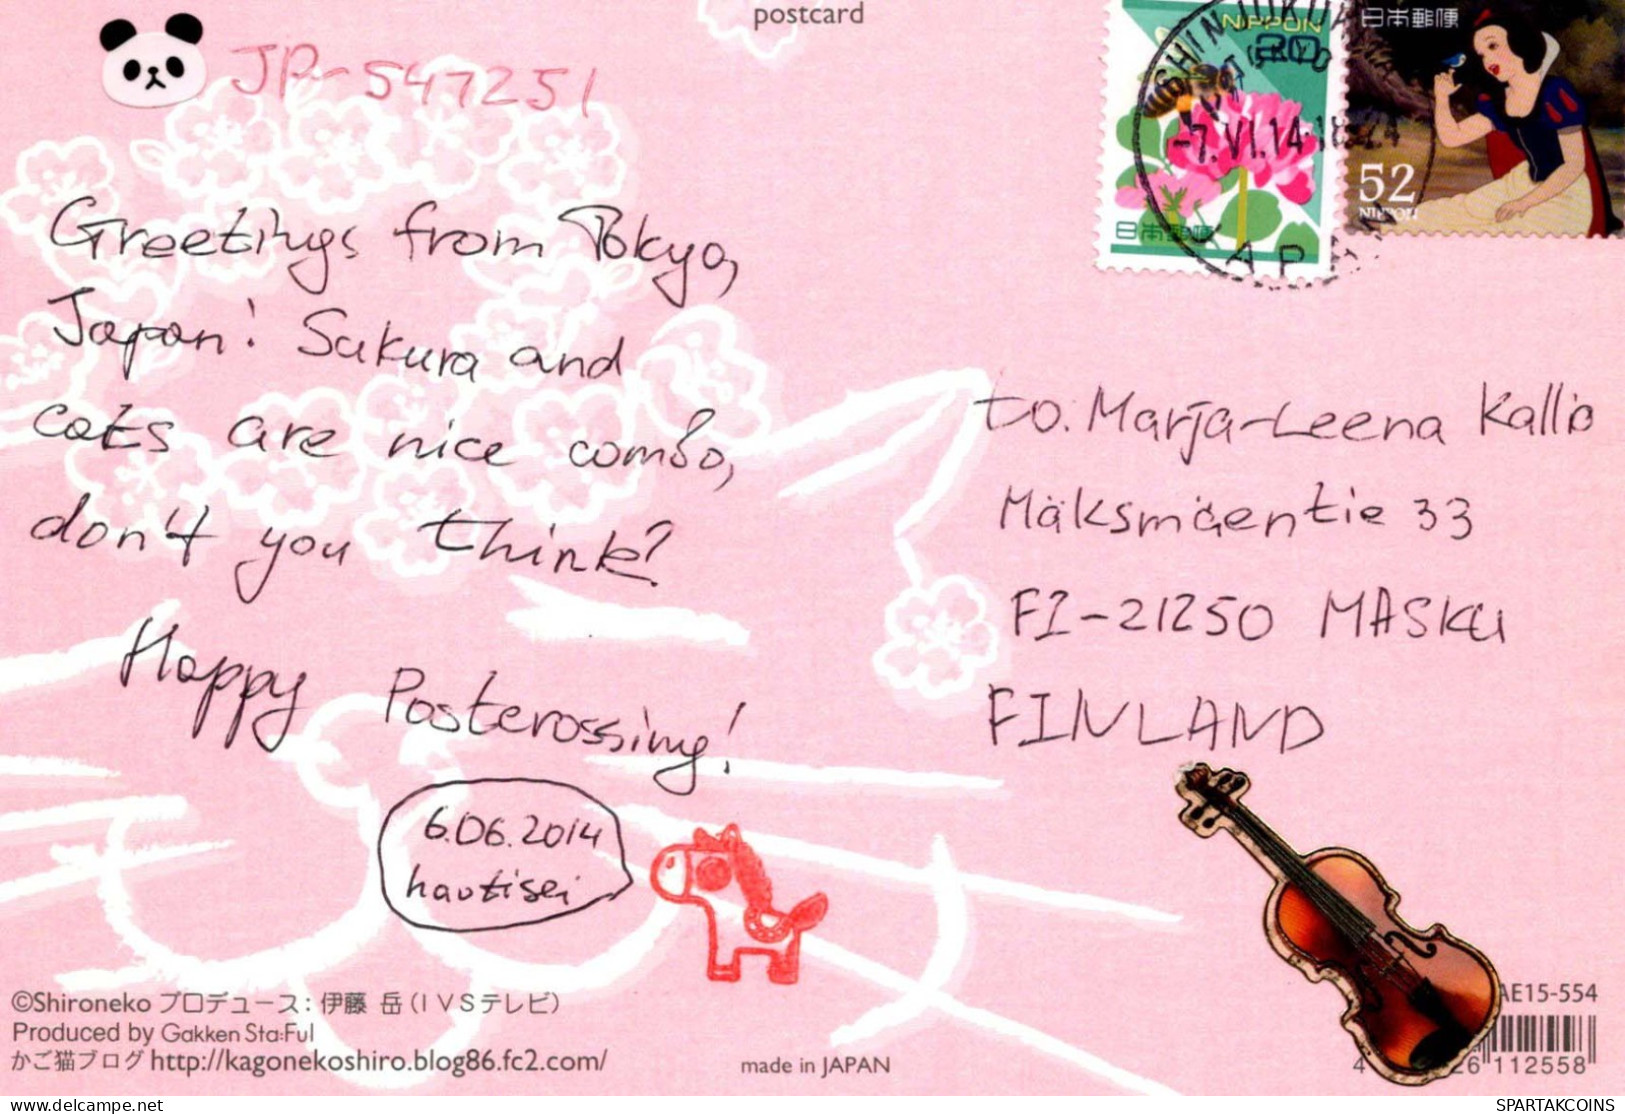 postcard
JP-547251
NIPPON
日本郵便
日本郵便
52
NIPPON
-7.VI.14
JAPAN
Greetings from Tokyo,
Japan! Sakura and
cats are nice combo,
don't you think?
Happy Postcrossing!
6.06.2014
hautisei
to. Marja-Leena Kallio
Mäksmäentie 33
FI-21250 MASKU
FINLAND
©Shironeko プロデュース: 伊藤 岳 (IVSテレビ)
Produced by Gakken Sta:Ful
かご猫ブログ http://kagonekoshiro.blog86.fc2.com/
made in JAPAN
AE15-554
4 26 112558
SPARTAKCOINS